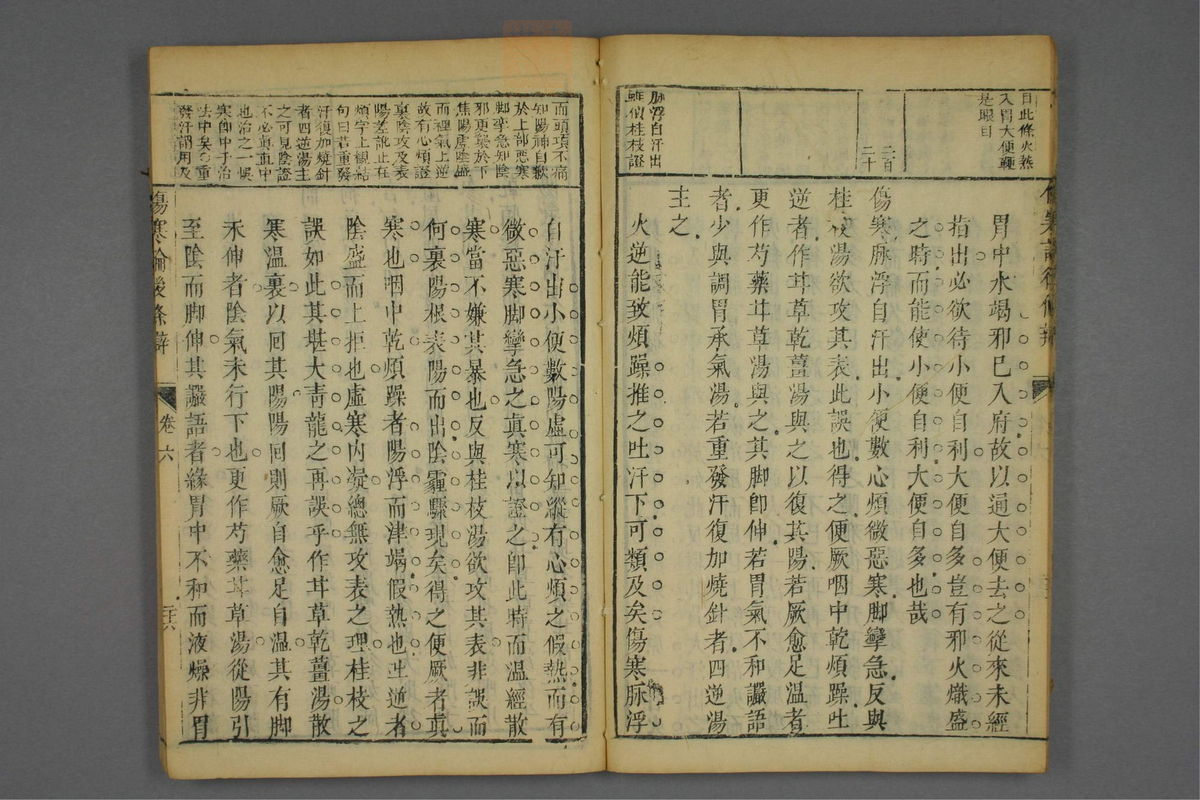 目此條火熱
入胃大便鞕
是眼目
二百
二十
脉浮自汗出
桂枝證
胃中水竭邪已入府故以通大便去之從來未經
指出必欲待小便自利大便自多豈有邪火熾盛
之時而能使小便自利大便自多也哉
傷寒脉浮自汗出小便數心煩微惡寒脚攣急反與
桂枝湯欲攻其表此誤也得之便厥咽中乾煩躁吐
逆者作甘草乾薑湯與之以復其陽若厥愈足溫者
更作芍藥甘草湯與之其脚卽伸若胃氣不和讝語
者少與調胃承氣湯若重發汗復加燒針者四逆湯
主之
火逆能致煩躁推之吐汗下可類及矣傷寒脉浮
而頭項不痛
知陽神自歉
於上部惡寒
脚攣急知陰
邪更襲於下
焦陽虛陰盛
而裡氣上逆
故有心煩證
裏陰攻及表
陽差訛止在
煩字上觀結
句曰若重發
汗復加燒針
者四逆湯主
之可見陰證
不必真直中
也治之一悞
寒卽中于治
法中矣○重
發汗謂用及
自汗出小便數陽虛可知縱有心煩之假熱而有
微惡寒脚攣急之真寒以證之卽此時而溫經散
寒當不嫌其暴也反與桂枝湯欲攻其表非誤而
何裏陽根表陽而出陰霾驟現矣得之便厥者真
寒也咽中乾煩躁者陽浮而津竭假熱也吐逆者
陰盛而上拒也虛寒內凝總無攻表之理桂枝之
誤如此其堪大青龍之再誤乎作甘草乾薑湯散
寒溫裏以回其陽陽回則厥自愈足自溫其有脚
未伸者陰氣未行下也更作芍藥甘草湯從陽引
至陰而脚伸其讝語者緣胃中不和而液燥非胃
傷寒論後條辯
卷六